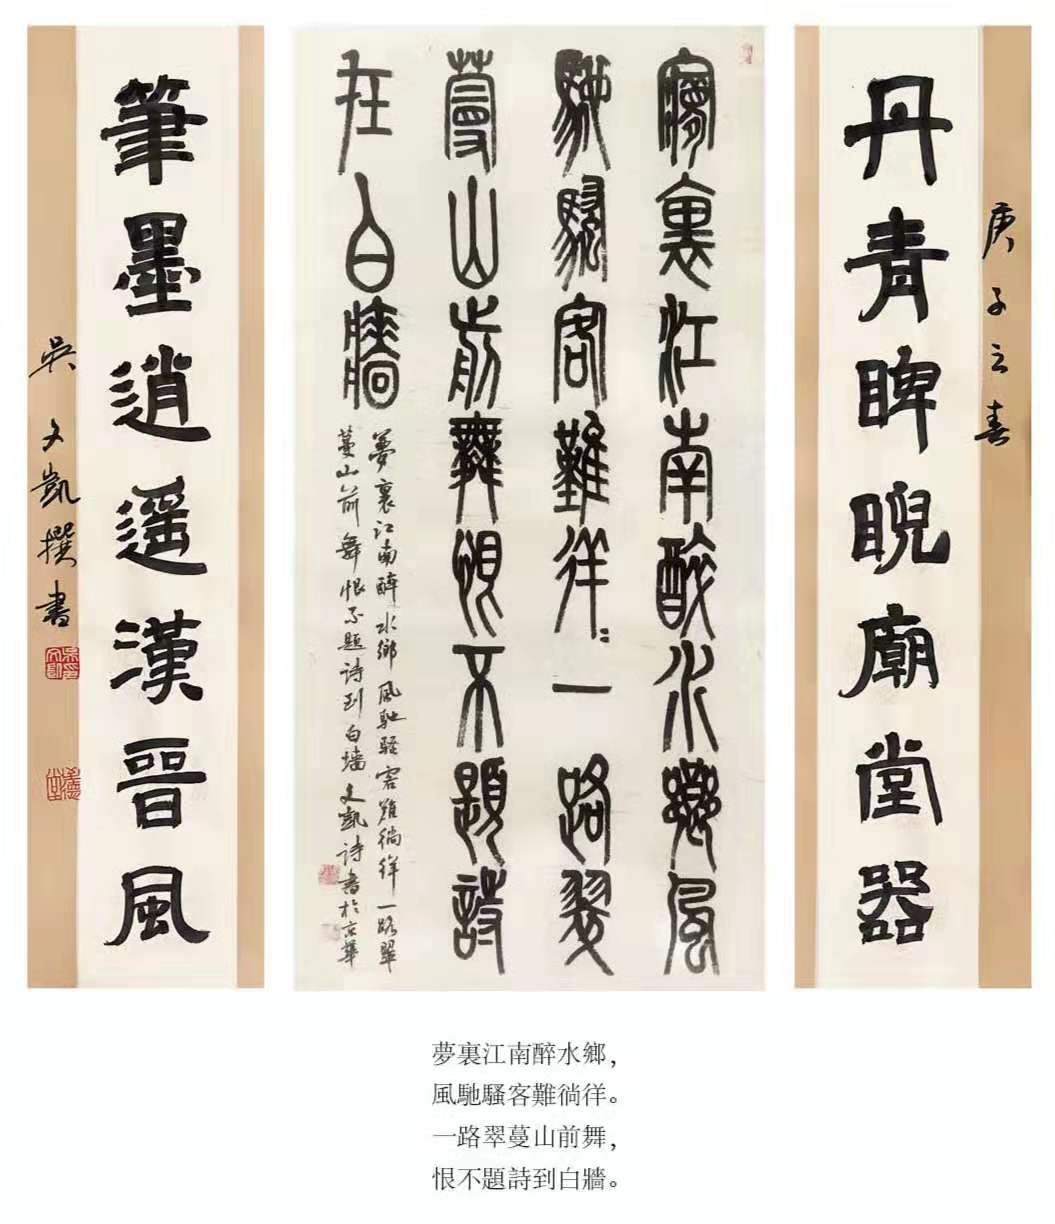 庚子之春
丹青睥睨廟堂器
夢裏江南醉水鄉風
馳騷客難徉々一路翠
蔓山前舞恨不題詩
在白牆
夢裏江南醉水鄉風馳騷客難徜徉一路翠
蔓山前舞恨不題詩到白墙文凱詩書於京華
筆墨逍遥漢晉風
吳文凱撰書
夢裏江南醉水鄉，
風馳騷客難徜徉。
一路翠蔓山前舞，
恨不題詩到白牆。